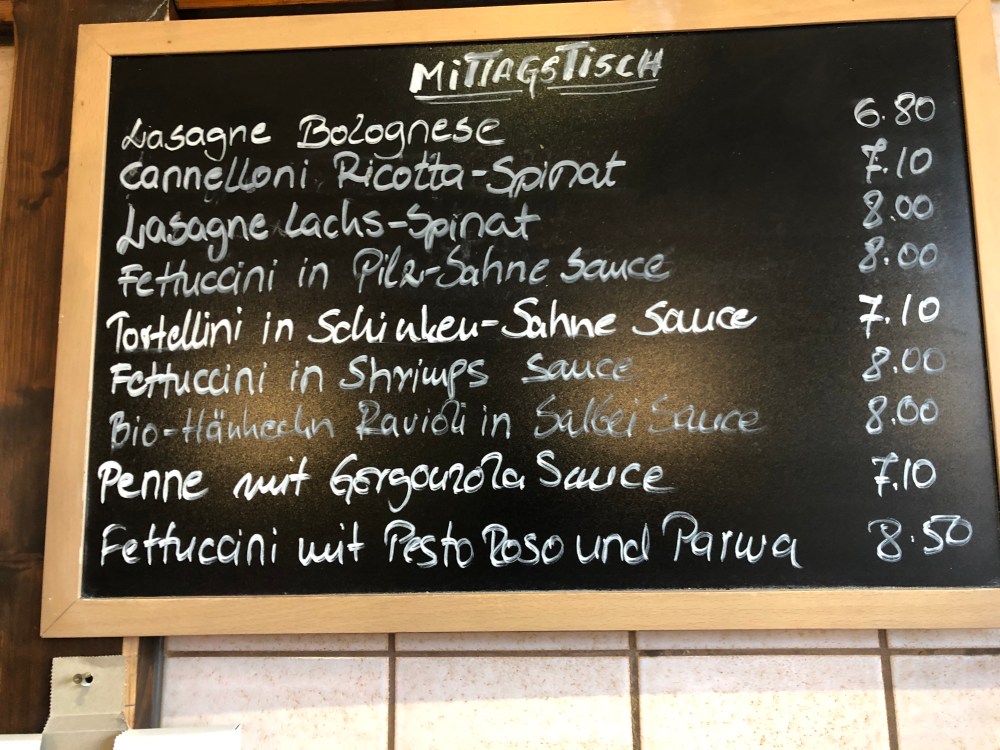 MITTAGSTISCH
Lasagne Bolognese 6.80
Cannelloni Ricotta-Spinat 7.10
Lasagne Lachs-Spinat 8.00
Fettuccini in Pilz-Sahne Sauce 8.00
Tortellini in Schinken-Sahne Sauce 7.10
Fettuccini in Shrimps Sauce 8.00
Bio-Hänhechn Ravioli in Salbei Sauce 8.00
Penne mit Gorgonzola Sauce 7.10
Fettuccini mit Pesto Roso und Parma 8.50